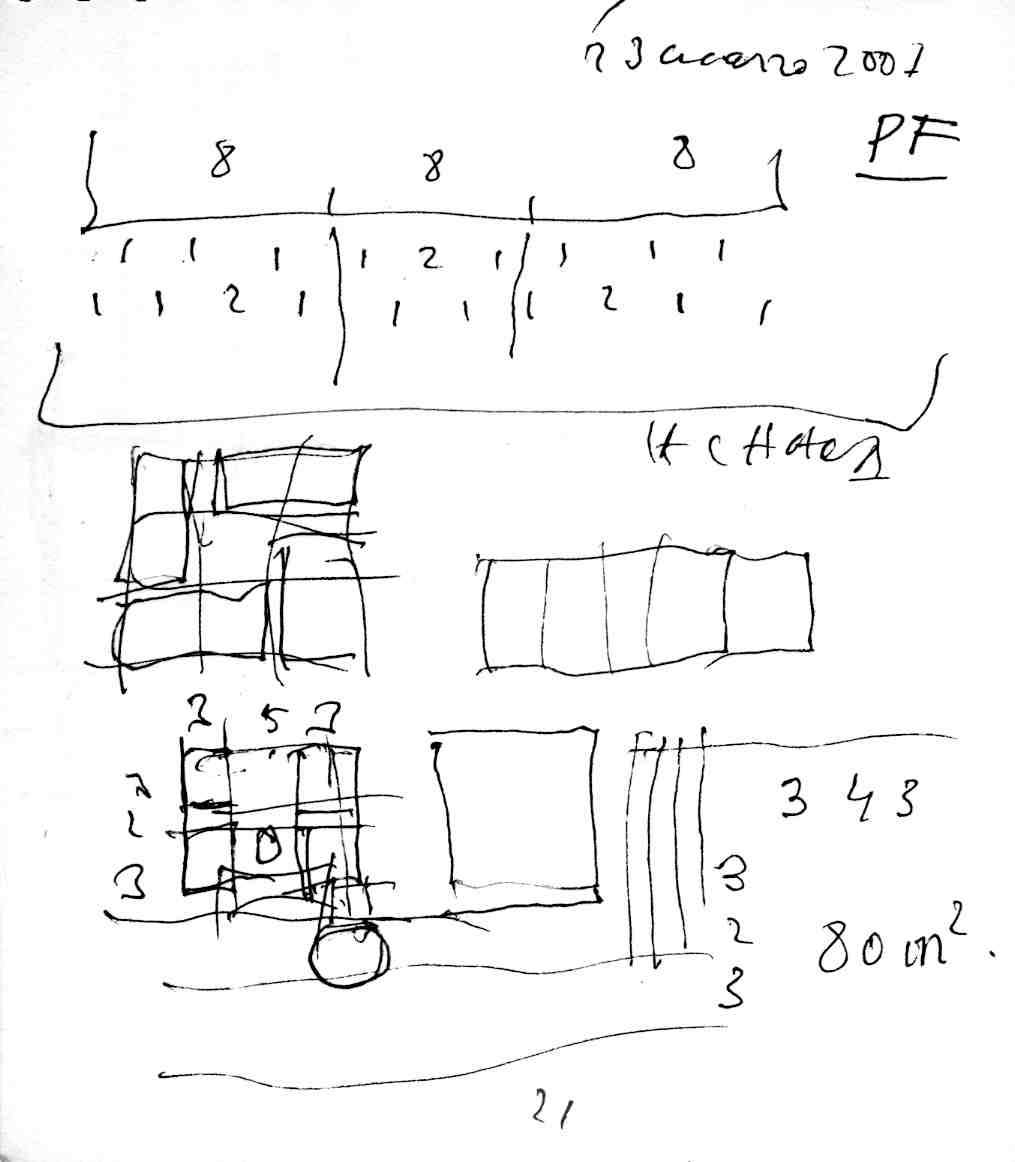 23 marzo 2001
PF
8 8 8
1 1 1 1 2 1 1 1 1
1 1 2 1 1 1 1 2 1 1
3 5 3
2
3
3 4 3
3
2
3
80 m².
21